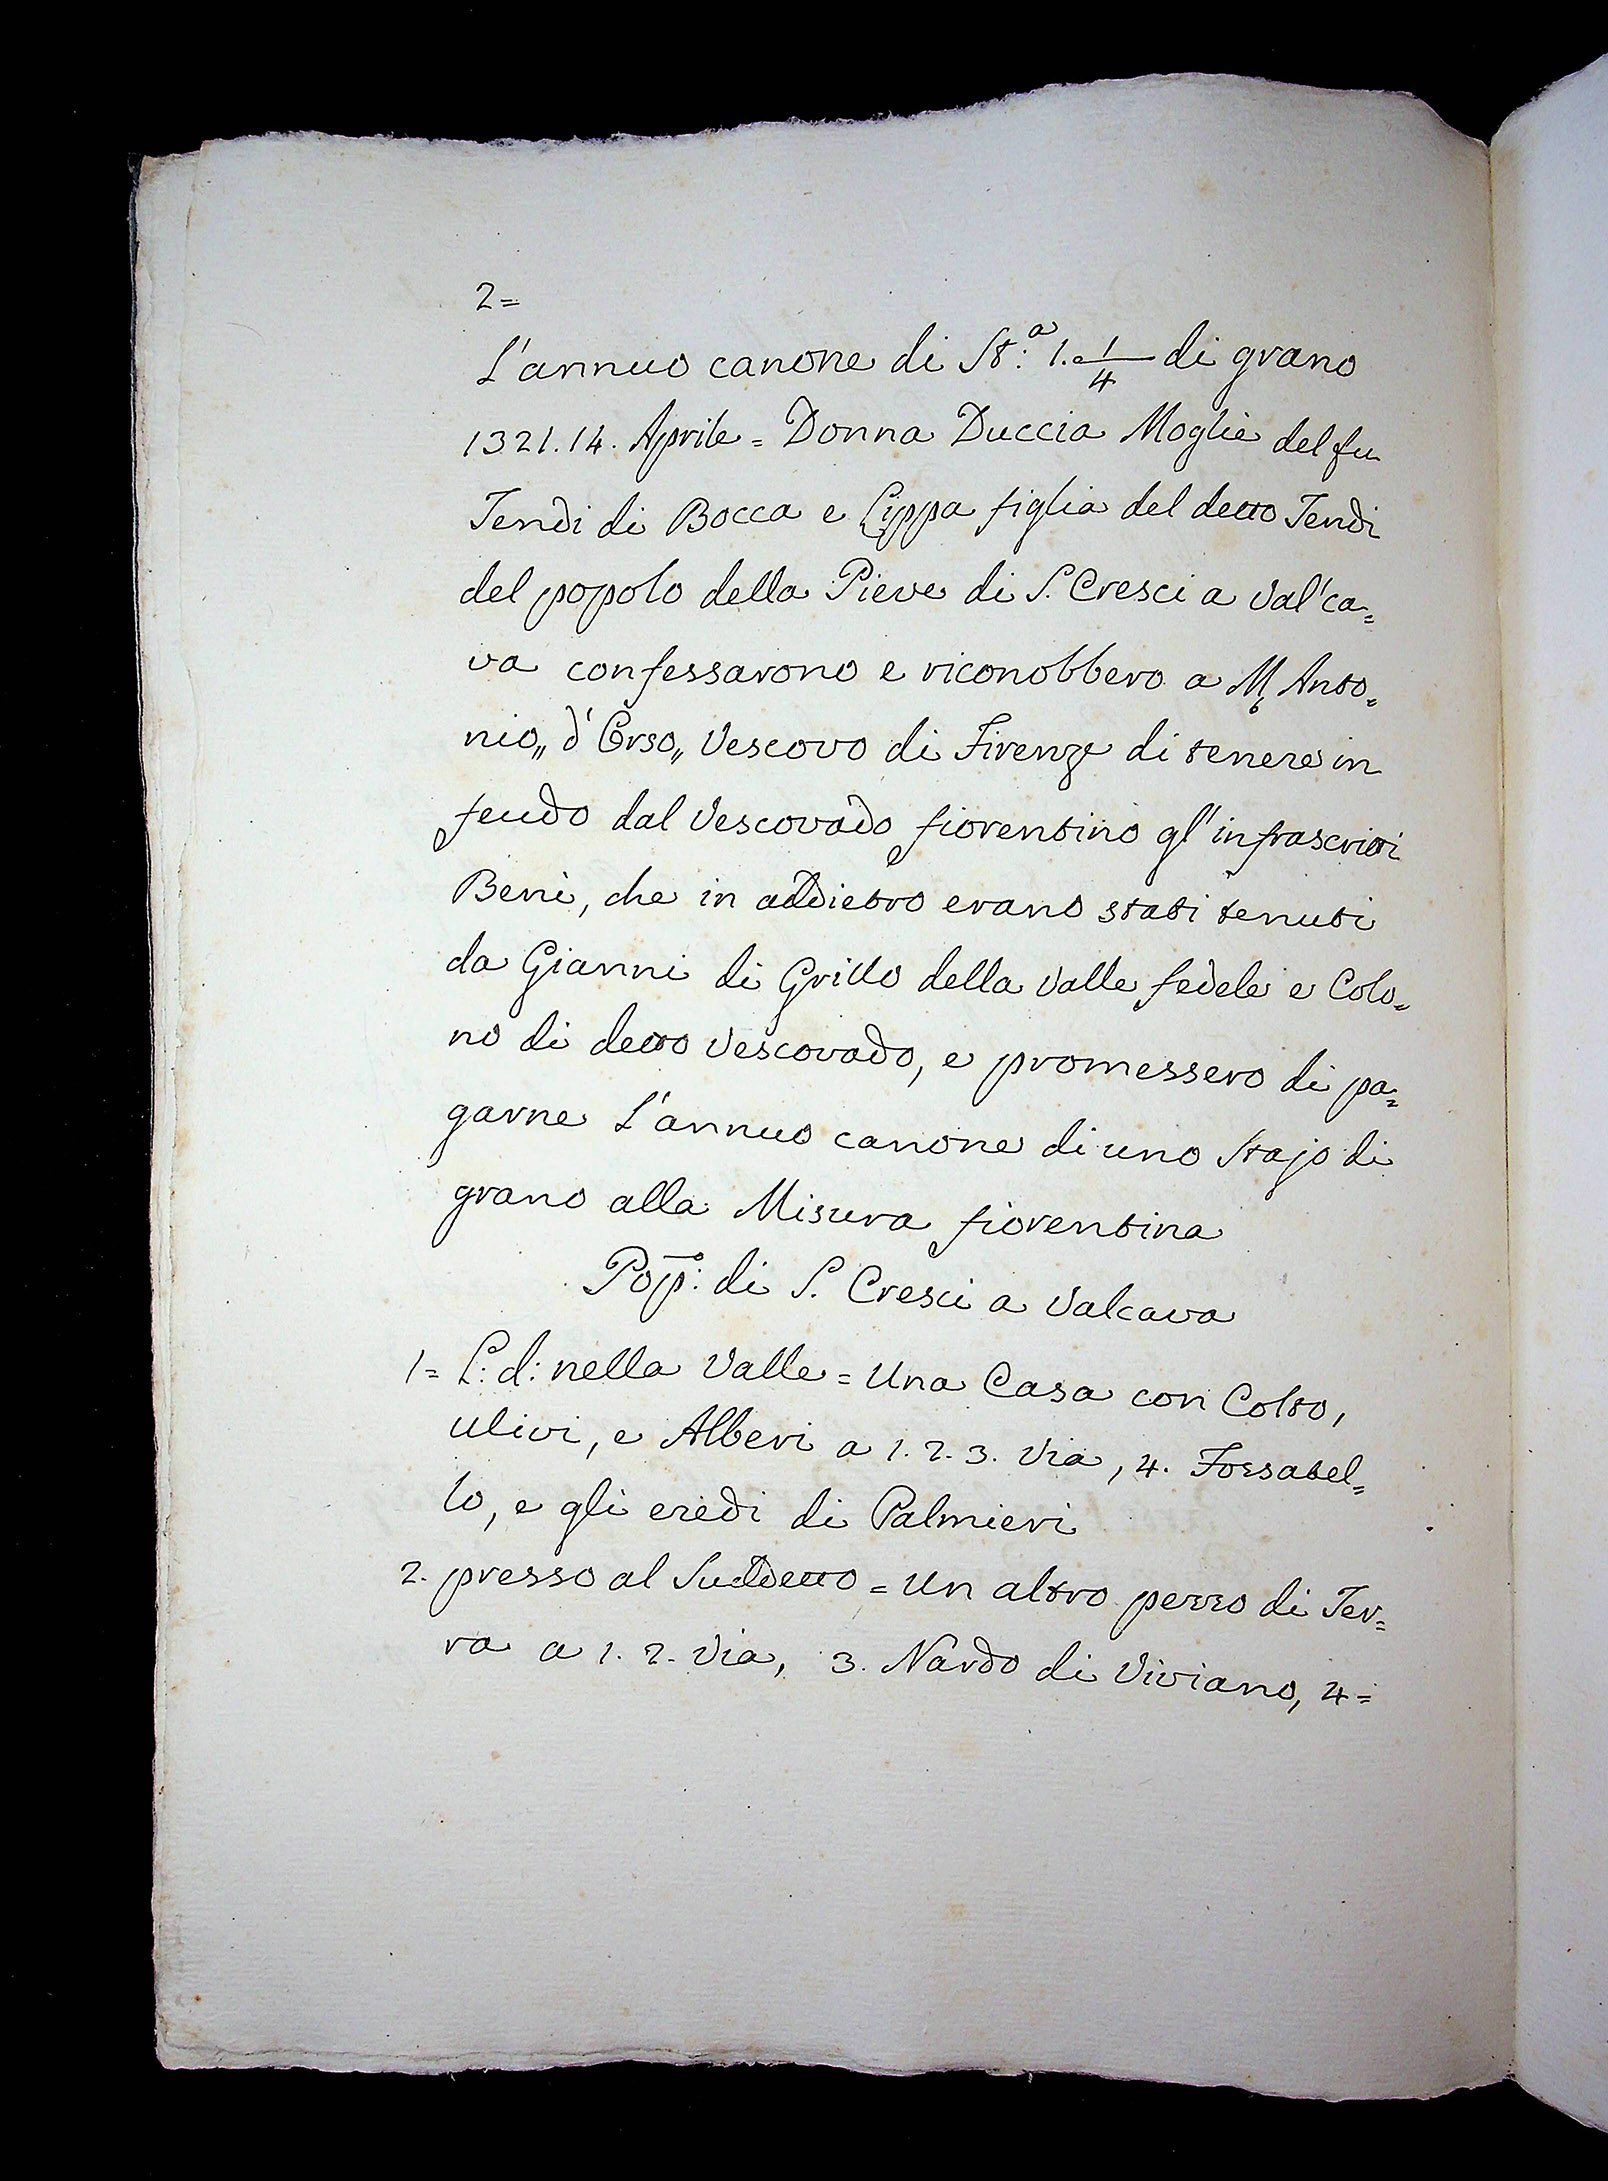 2=
L'annuo canone di St:ª 1. 1/4 di grano
1321. 14. Aprile = Donna Duccia Moglie del fu
Tendi di Bocca e Lippa figlia del detto Tendi
del popolo della Pieve di S. Cresci a Val'ca=
va confessarono e riconobbero a M. Anto=
nio,, d'Orso,, Vescovo di Firenze di tenere in
feudo dal Vescovado fiorentino gl'infrascritti
Beni, che in addietro erano stati tenuti
da Gianni di Grillo della Valle fedele e Colo=
no di detto Vescovado, e promessero di pa=
garne L'annuo canone di uno Stajo di
grano alla Misura fiorentina
Pop:º di S. Cresci a Valcava
1= L: d: nella Valle = Una Casa con Colto,
ulivi, e Alberi a 1. 2. 3. Via, 4. Fossatel=
lo, e gli eredi di Palmieri
2. presso al Suddetto = Un altro pezzo di Ter=
ra a 1. 2. Via, 3. Nardo di Viviano, 4=